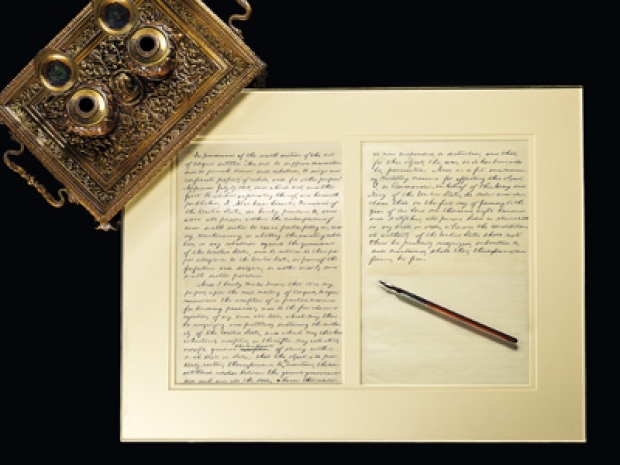 In pursuance of the sixth section of the act
of congress entitled "An act to suppress insurrection
and to punish treason and rebellion, to seize and
confiscate property of rebels, and for other purposes"
Approved July 17, 1862, and which act, and the
Joint Resolution explanatory thereof, are herewith
published, I, Abraham Lincoln, President of
the United States, do hereby proclaim to, and
warn all persons within the contemplation of
said sixth section to cease participating in, aid-
ing, countenancing, or abetting the existing rebel-
lion, or any rebellion against the government
of the United States, and to return to their pro-
per allegiance to the United States, on pain of the
forfeitures and seizures, as within and by said
sixth section provided.
And I hereby make known that it is my
purpose, upon the next meeting of congress, to again
recommend the adoption of a practical measure
for tendering pecuniary aid to the free choice or
rejection, of any and all States which may then
be recognizing and practically sustaining the autho-
rity of the United States, and which may then have
voluntarily adopted, or thereafter may voluntarily
adopt, gradual abolishment of slavery within
such State or States
that the object is to prac-
tically restore, thenceforward to be maintained, the con-
stitutional relation between the general government,
and each, and all the states, wherein that relation
is now suspended, or disturbed; and that,
for this object, the war, as it has been, will
be, prosecuted. And, as a fit and necessary
military measure for effecting this object,
I, as Commander-in-Chief of the Army and
Navy of the United States, do order and de-
clare that on the first day of January in the
year of Our Lord one thousand, eight hundred
and sixtythree, all persons held as slaves with-
in any state or states, wherein the constitution-
al authority of the United States shall not
then be practically recognized, submitted to,
and maintained, shall then, thenceforward, and
forever, be free.